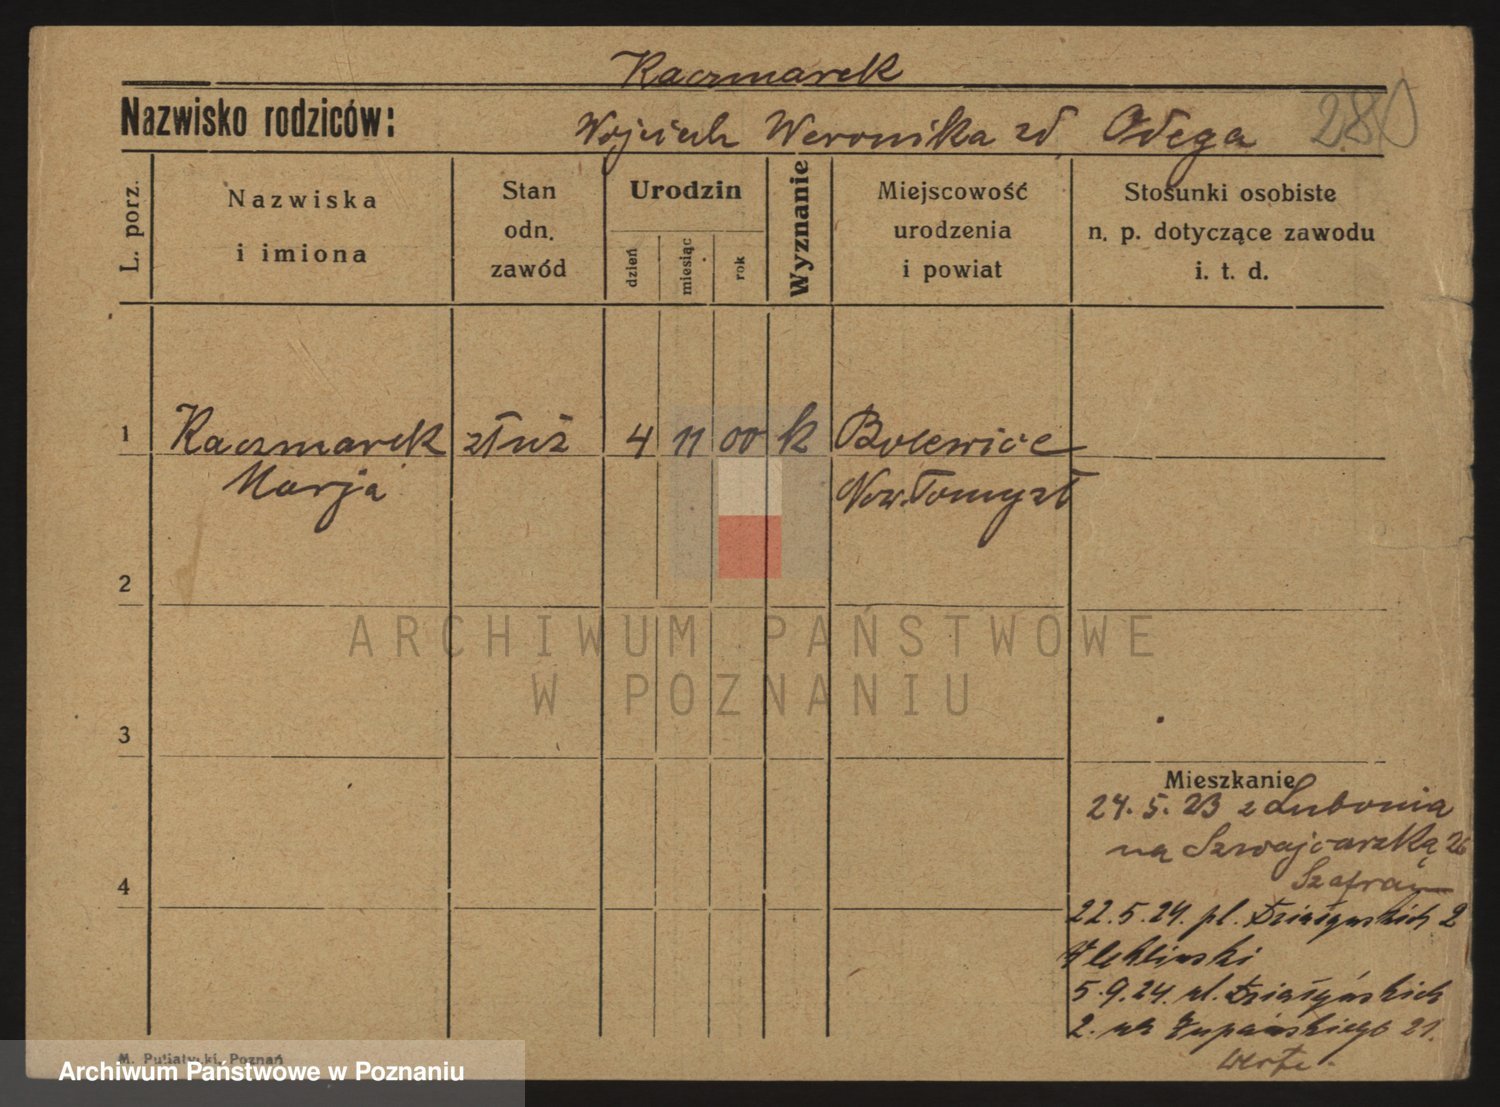 Kaczmarek
280
Nazwisko rodziców:
Wojciech Weronika zd. Odega
L. porz.
Nazwiska
i imiona
Stan
odn.
zawód
Urodzin
dzień
miesiąc
rok
Wyznanie
Miejscowość
urodzenia
i powiat
Stosunki osobiste
n. p. dotyczące zawodu
i. t. d.
1
Kaczmarek
Marja
służ
4
11
00
k
Bolewice
Now. Tomyśl
2
ARCHIWUM PAŃSTWOWE
W POZNANIU
3
Mieszkanie
24.5.23 z Lubonia
na Szwajcarzką 26
4
22.5.24. pl. Działyńskich 2
5.9.24. ul. Działyńskich
2. na Żupańskiego 21.
M. Putiatycki, Poznań
Archiwum Państwowe w Poznaniu